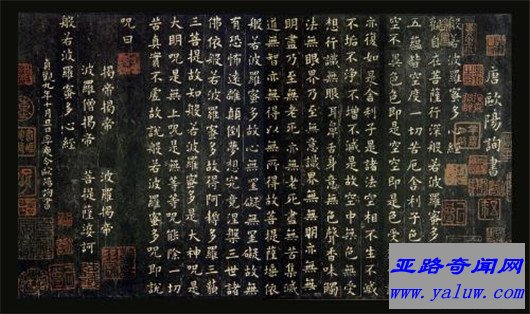 唐歐陽詢書
般若波羅蜜多
觀自在菩薩行深般若波羅蜜多
五蘊皆空度一切苦厄舍利子色
空不異色色即是空空即是色受
亦復如是舍利子是諸法空相不生不滅
不垢不淨不增不減是故空中無色無受
想行識無眼耳鼻舌身意無色聲香味觸
法無眼界乃至無意識界無無明亦無無
明盡乃至無老死亦無老死盡無苦集滅
道無智亦無得以無所得故菩提薩埵依
般若波羅蜜多故心無罣礙無罣礙故無
有恐怖遠離顛倒夢想究竟涅槃三世諸
佛依般若波羅蜜多故得阿耨多羅三藐
三菩提故知般若波羅蜜多是大神呪是
大明呪是無上呪是無等等呪能除一切
苦真實不虛故說般若波羅蜜多呪即說
呪曰
揭帝揭帝 波羅揭帝
波羅僧揭帝 菩提薩婆訶
般若波羅蜜多心經
貞觀九年十月旦日率更令歐陽詢書
亚路奇闻网
www.yaluw.com